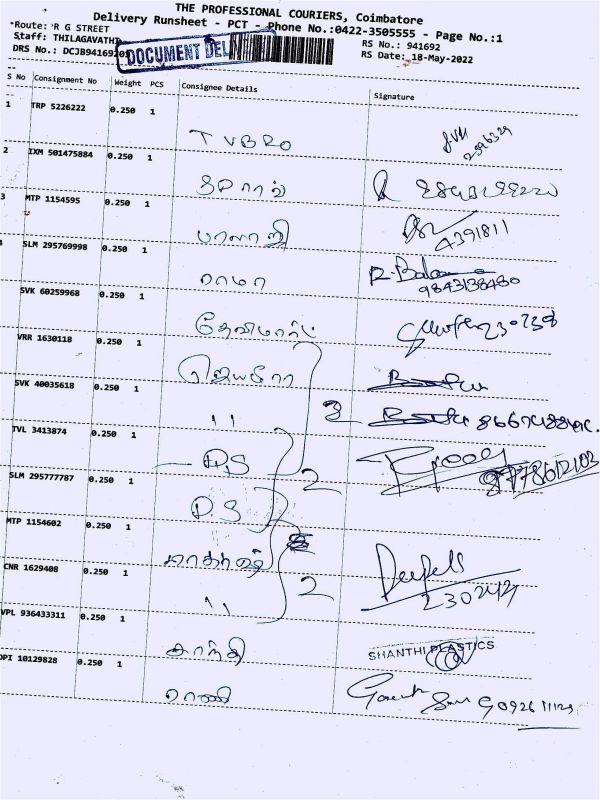 THE PROFESSIONAL COURIERS, Coimbatore
Delivery Runsheet - PCT - Phone No.:0422-3505555 - Page No.:1
Route: R G STREET
Staff: THILAGAVATHI
RS No.: 941692
DRS No.: DCJB941692
DOCUMENT DEL
RS Date: 18-May-2022
S No Consignment No Weight PCS Consignee Details Signature
1 TRP 5226222 0.250 1 TVBRO
2596329
2 IXM 501475884 0.250 1
3 MTP 1154595 0.250 1 பாலாஜி
4391811
4 SLM 295769998 0.250 1 ராமா R. Bala
9843138480
SVK 60259968 0.250 1 தேவிமார்ட்
VRR 1630118 0.250 1 ஜெயஸ்ரீ
SVK 40035618 0.250 1 " 2
TVL 3413874 0.250 1 DS 2
SLM 295777787 0.250 1 DS
MTP 1154602 0.250 1 Deepak
CNR 1629408 0.250 1 " 2
VPL 936433311 0.250 1 சாந்தி SHANTHI PLASTICS
OPI 10129828 0.250 1 ராணி Ganesh